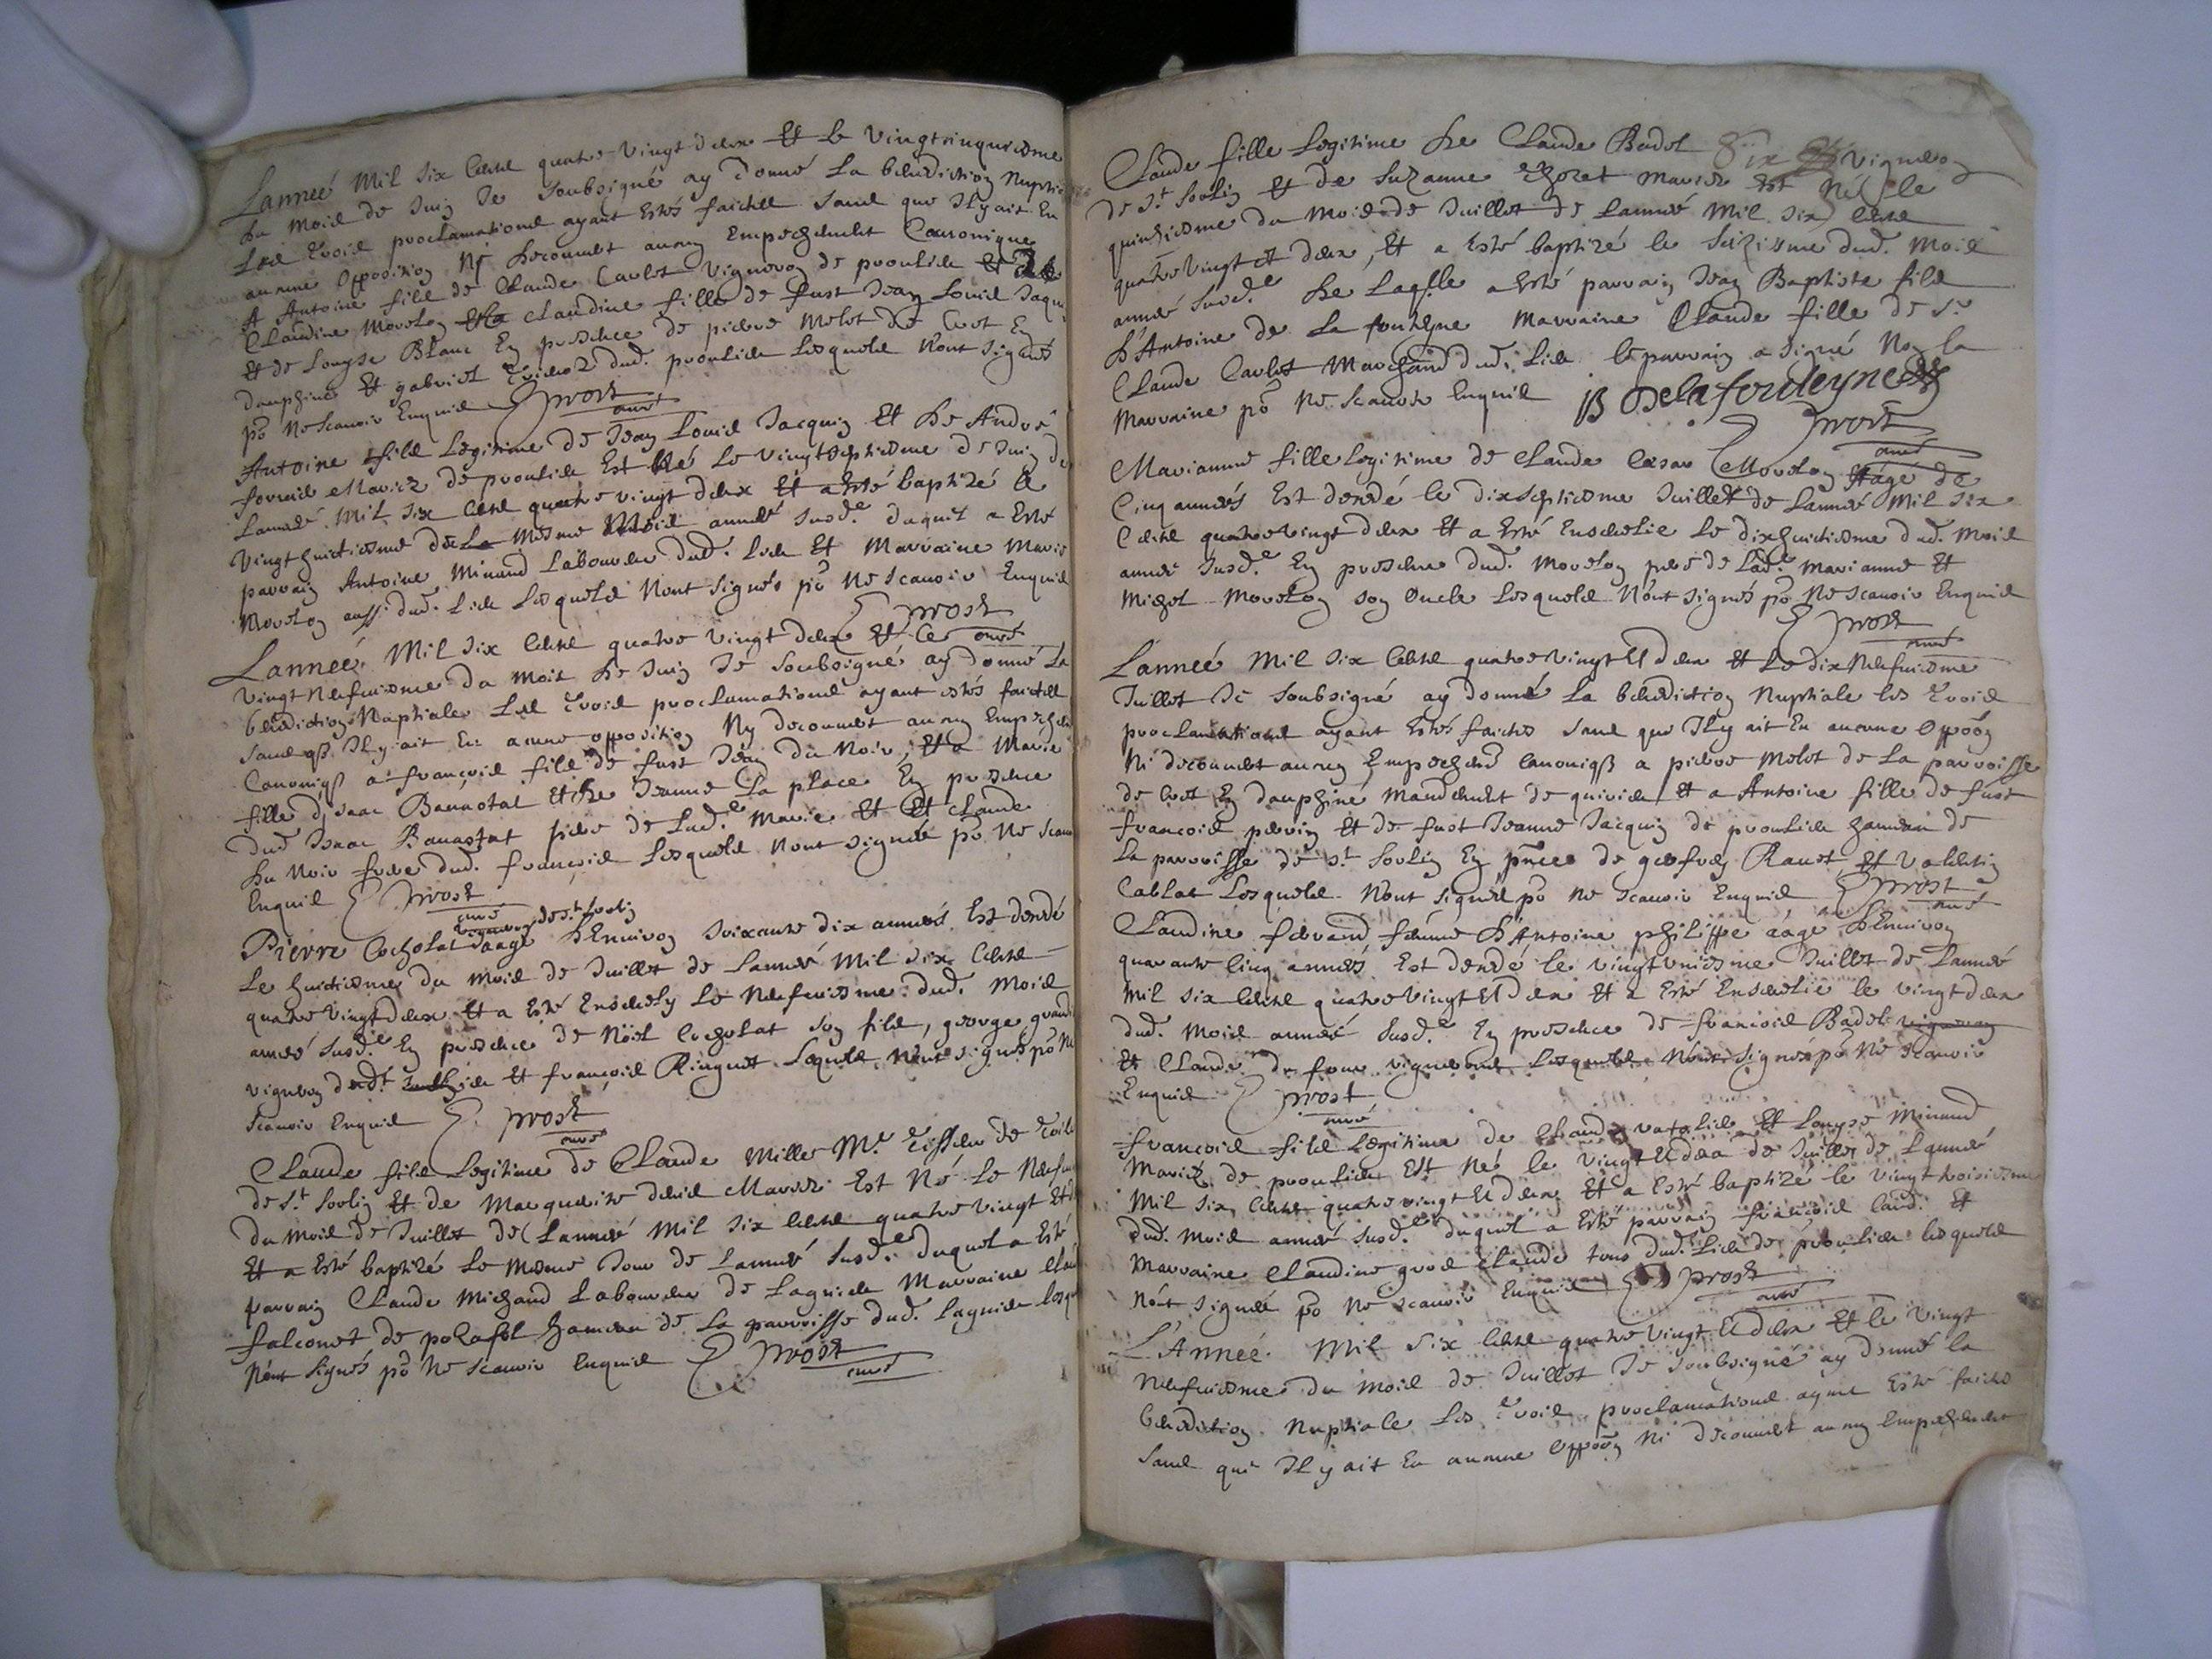 Lanneé Mil six cents quatre vingt deux Et le vingtcinquiesme
du mois de Juin Je soubsigné ay donné La benediction Nuptia
Les trois proclamations ayant estés faictes sans que Il y ait Eu
aucune opposition Ni descouvert aucun Empeschement Canonique
A Antoine fils de Claude Carlot vigneron de proulieu et de
Claudine Moreton Et a Claudine fille de fust Jean Louis Jaqui
Et de Louyse Blanc En presence de pierre Melot de Crot En
dauphiné Et gabriel dud. proulieu Lesquels Nont signés
po Ne scavoir Enquis Prost
curé
Antoine fils Legitime de Jean Louis Jacquin Et de André
Mariez de proulieu Est Né Le vingtseptiesme de Juin de
Lanneé Mil six cents quatre vingt deux Et a esté baptizé le
vingthuictiesme de La mesme annee susd.e duquel a Esté
parrain Antoine Minand Laboureur dud. Lieu Et Marraine Marie
Moreton aussi dud. Lieu Lesquels Nont signés po Ne Scavoir Enquis
Prost
curé
Lanneé Mil six cents quatre vingt deux Et le
vingt Neufviesme du mois de Juin Je soubsigné ay donné La
benediction Nuptiale Les trois proclamations ayant estés faictes
sans q Il y ait Eu aucune opposition Ny descouvert aucun Empesche
Canoniq a françois fils de fust Jean du Noir, Et a Marie
fille d'Isaac Banastat Et de Jeanne La place En presence
dud Isaac Banastat pere de Lad.e Marie Et Et Claude
du Noir frere dud. françois Lesquels Nont signés po Ne scavoi
Enquis Prost
curé
vigneron de s.t Sorlin
Pierre Cocholat aagé d'Environ soixante dix années Est decedé
Le huictiesme du mois de Juillet de Lanneé Mil six cents
quatre vingt deux Et a esté Ensevely Le Neufviesme dud. mois
anneé susd.e En presence de Noël Cocholat son fils, george grand
vigneron dud. Lieu Et françois Ringuet Lesquels Nont signés po Ne
Scavoir Enquis Prost
curé
Claude fils Legitime de Claude Millet M.e tisseur de toile
de S.t Sorlin Et de Marguerite Mariez Est Né Le Neufvi
du mois de Juillet de Lanneé Mil six cents quatre vingt Et d
Et a Esté baptizé Le mesme Jour de Lanneé susd.e duquel a Esté
parrain Claude Michaud Laboureur de Lagnieu Marraine Clau
falconet de polafol hameau de La parroisse dud. Lagnieu Lesqu
Nont signés po Ne scavoir Enquis Prost
curé
Claude fille Legitime de Claude Badol vigneron
de S.t Sorlin Et de Suzanne Mariez Est Née le
quinziesme du mois de Juillet de Lanneé Mil six cents
quatre vingt et deux, Et a Esté baptizé le seiziesme dud. Mois
anneé susd.e De Laq.lle a esté parrain Jean Baptiste fils
d'Antoine de La fonteyne Marraine Claude fille de S.r
Claude Carlot Marchand dud. Lieu le parrain a signé Non la
Marraine po Ne scavoir Enquis JB Delafonteyne
Prost
curé
Marianne fille legitime de Claude Cesar Moreton agé de
Cinq années Est decedé le dixseptiesme Juillet de Lanneé Mil six
Cents quatrevingt deux Et a Esté Ensevelie Le dixhuictiesme dud. Mois
anneé susd.e En presence dud. Moreton pere de Lad.e Marianne Et
Michel Moreton son Oncle Lesquels Nont signés po Ne scavoir Enquis
Prost
curé
Lanneé Mil six Cents quatre vingt Et deux Et Le dix Neufviesme
Juillet Je soubsigné ay donné La benediction Nuptiale les trois
proclamations ayant Estés faictes sans que Il y ait Eu aucune Oppoon
Ni descouvert aucun Empeschemt canoniq a pierre Melot de La parroisse
de Crot En dauphiné Mandement de quirieu Et a Antoine fille de fust
francois perrin Et de fust Jeanne Jacquin de proulieu hameau de
La parroisse de S.t Sorlin En pnce de geofroy Ravet Et Valentin
Cablat Lesquels Nont signés po Ne scavoir Enquis Prost
curé
Claudine femme d'Antoine philippe aagé d'Environ
quarante Cinq années Est decedé le vingtuniesme Juillet de Lanneé
Mil six Cents quatre vingt Et deux Et a Esté Ensevelie le vingt deux
dud. Mois anneé susd.e En presence de francois Badol vigneron
Et Claude du four vignerons Lesquels Nont signés po Ne scavoir
Enquis Prost
curé
françois fils Legitime de Claude Et Louyse Minand
Mariez de proulieu Est Né le vingt Et deux de Juillet de Lanneé
Mil six Cents quatre vingt Et deux Et a Esté baptizé le vingt troisiesme
dud. Mois anneé susd.e duquel a Esté parrain françois Et
Marraine Claudine tous dud. Lieu de proulieu Lesquels
Nont signés po Ne scavoir Enquis Prost
curé
L'Anneé Mil six Cents quatre vingt Et deux Et le vingt
Neufviesme du mois de Juillet Je soubsigné ay donné la
benediction Nuptiale Les trois proclamations ayant Esté faictes
sans que Il y ait Eu aucune Oppoon Ni descouvert aucun Empeschement